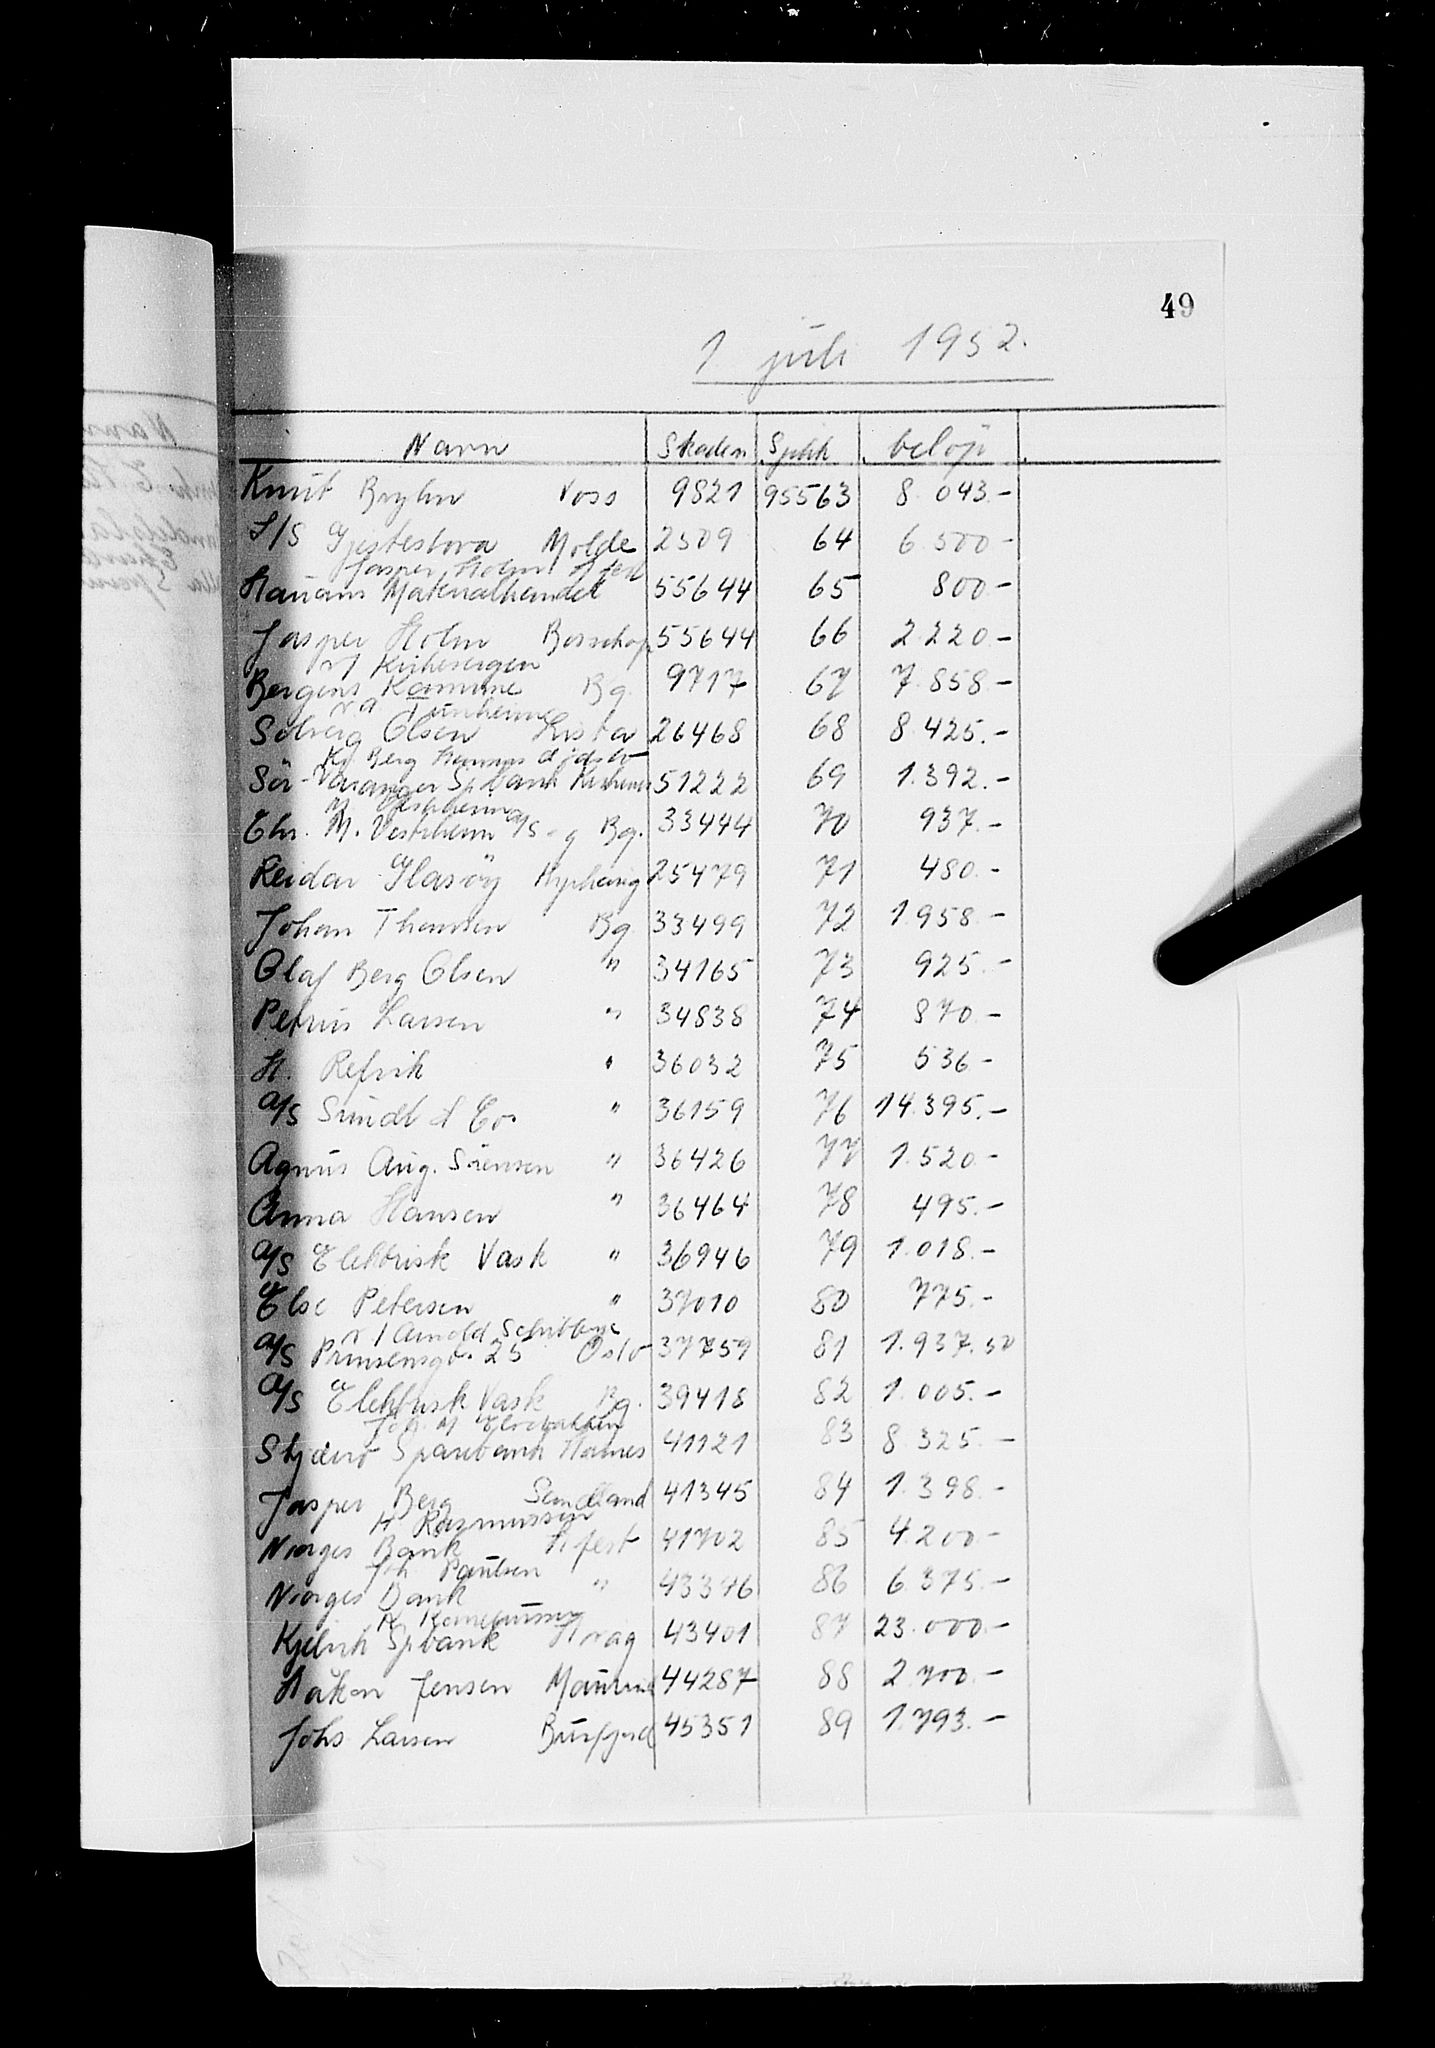 49
1 juli 1952.
Navn Skaden Spkk beløp
Knut Bryhn Voss 9821 95563 8.043.-
L/S Gjestestova Molde 2509 64 6.500-
Jasper Holm Hfest
Hauans Materialhandel 55644 65 800-
Jasper Holm Bossekop 55644 66 2.220-
v/ Kirkevergen
Bergens Komune Bg. 9717 67 7.858-
v.d. Tunheim
Solveig Olsen Lista 26468 68 8.425.-
Berg Hannus
Sör-Varanger Sp.bank Kirkenes 51222 69 1.392.-
M. Vestrheim
Chr. M. Vestrheim A/S Bg. 33444 70 937.-
Reidar Glasöy 25479 71 480.-
Johan Thomsen Bg 33499 72 1.958.-
Olaf Berg Olsen " 34165 73 925.-
Petrus Larsen " 34838 74 870.-
H. Refvik " 36032 75 536-
A/S Sundt & Co " 36159 76 14.395.-
Agnus Aug. Sörensen " 36426 77 1.520-
Anna Hansen " 36464 78 495.-
A/S Elektrisk Vask " 36946 79 1.018.-
Else Petersen " 37010 80 775.-
v/ Arnold Schibbye
A/S Prinsensgt. 25 Oslo 37757 81 1.937.50
A/S Elektrisk Vask Bg. 39418 82 1.005.-
Stjern Sparebank Hamnes 41121 83 8.325.-
Jasper Berg Semeland 41345 84 1.398.-
A Rasmussen
Norges Bank Hfest 41702 85 4.200-
Joh Paulsen
Norges Bank " 43376 86 6.375.-
Kjelvik Spbank Hvag 43401 87 23.000.-
Håkon Jensen 44287 88 2.700.-
Johs Larsen Burfjord 45351 89 1.793.-